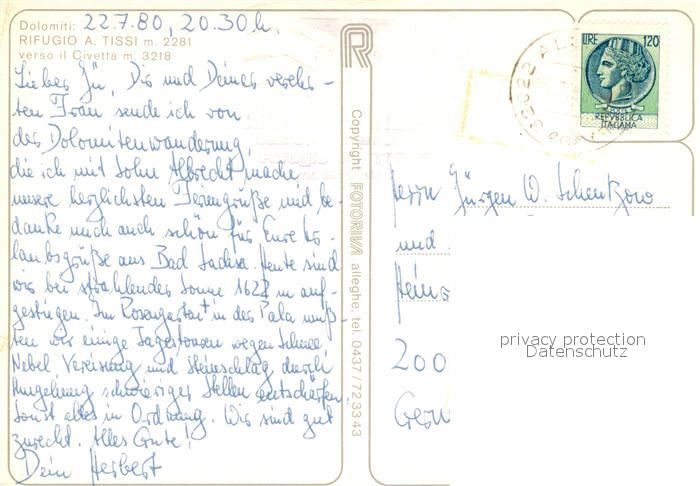 Dolomiti: 22.7.80, 20.30 h.
RIFUGIO A. TISSI m. 2281
verso il Civetta m. 3218
Lieber Jü, Dir und Deiner verehr-
ten Frau sende ich von
der Dolomitenwanderung,
die ich mit Sohn Albrecht mache,
unsere herzlichsten Feriengrüße und be-
danke mich auch schön für Eure Ur-
laubsgrüße aus Bad Sachsa. Heute sind
wir bei strahlender Sonne 1622 m auf-
gestiegen. Im Rosengarten + in der Pala muß-
ten wir einige Tagestouren wegen Schnee
Nebel Vereisung und Steinschlag durch
Umgehung schwieriger Stellen entschärfen,
sonst alles in Ordnung. Wir sind gut
zurecht. Alles Gute!
Dein Herbert
R
Copyright FOTORIVA alleghe, tel. 0437/723343
LIRE 120
REPVBBLICA
ITALIANA
32022
Herrn Jürgen W. Schentzow
und
Heins
200
Germ
privacy protection
Datenschutz